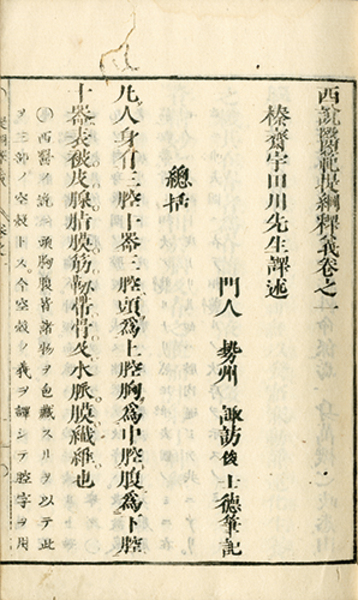 西説醫範提綱釋義卷之一
榛齋宇田川先生譯述
門人 勢州 諏訪俊士德筆記
總括
凡人身有三腔十器三腔頭爲上腔胸爲中腔腹爲下腔
十器表被皮腺脂膜筋靭帶骨及水脈膜纖維也
西醫ノ説ニ頭胸腹皆諸物ヲ包藏スルヲ以テ此
ヲ三部ノ空殼トス今空殼ノ義ヲ譯シテ腔字ヲ用